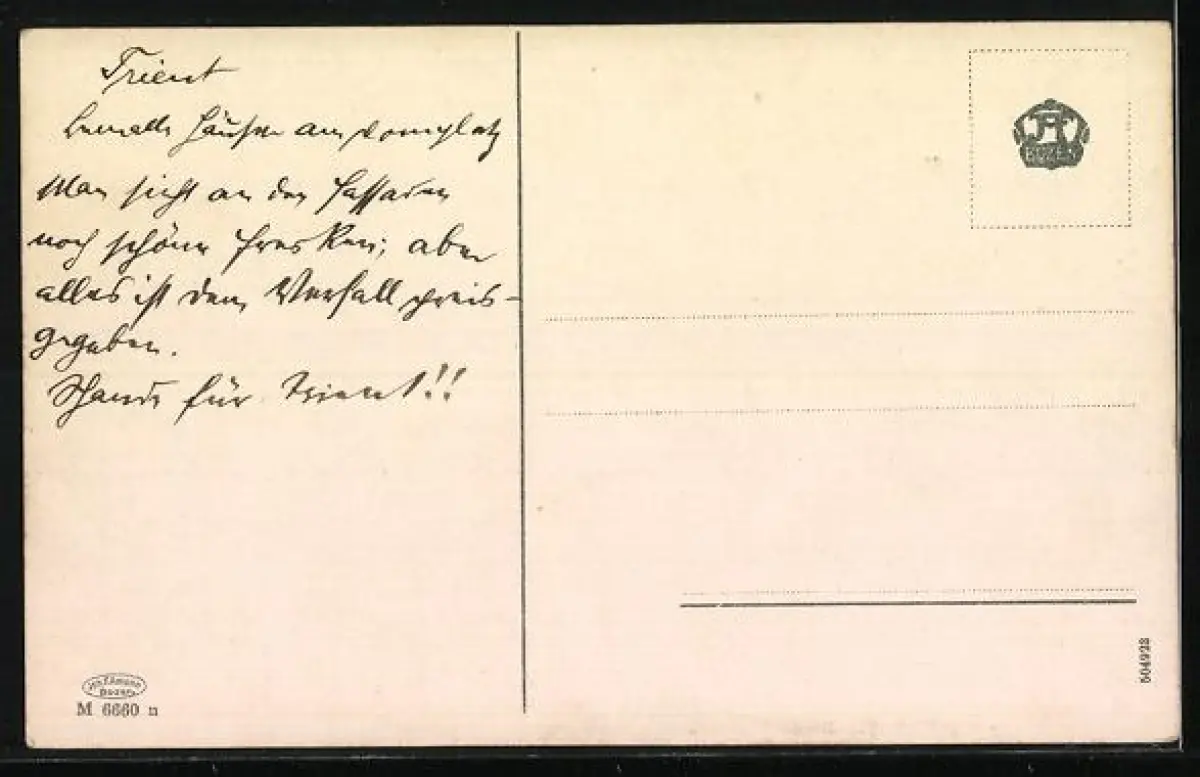 Trient
bemalte Häuser am Domplatz
Man sieht an den Fassaden
noch schöne Fresken; aber
alles ist dem Verfall preis-
gegeben.
Schande für Trient!!
BOZEN
Bozen
M 6660 n
504923